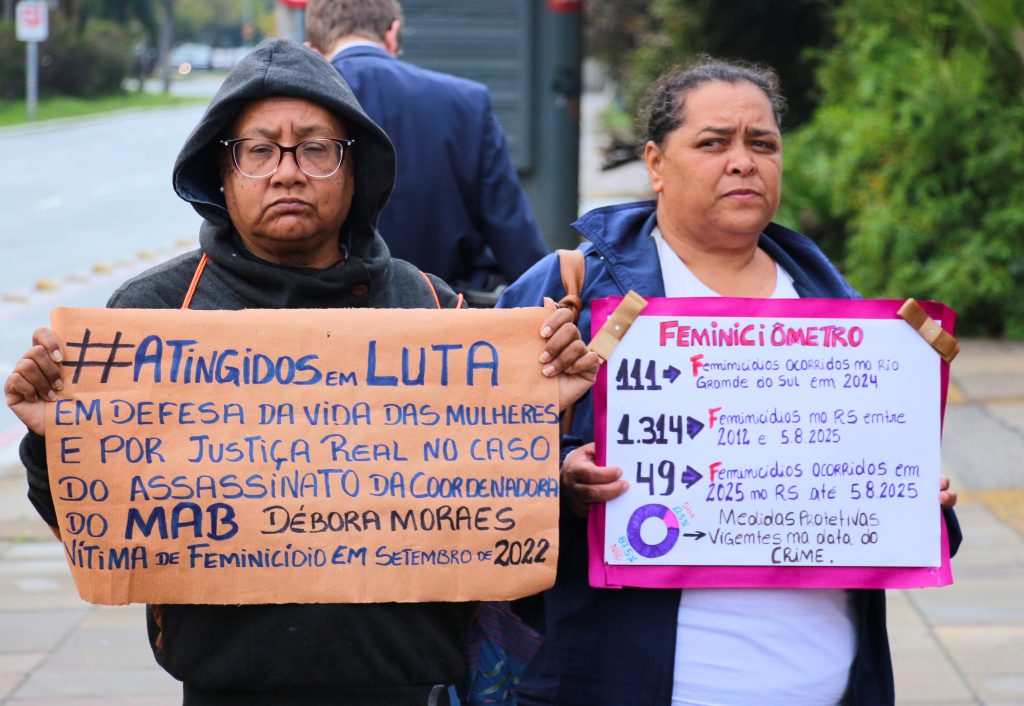 #ATINGIDOS EM LUTA
EM DEFESA DA VIDA DAS MULHERES
E POR JUSTIÇA REAL NO CASO
DO ASSASSINATO DA COORDENADORA
DO MAB DÉBORA MORAES
VÍTIMA DE FEMINICÍDIO EM SETEMBRO DE 2022
FEMINICIÔMETRO
111 → FEMINICÍDIOS OCORRIDOS NO RIO
GRANDE DO SUL EM 2024
1.314 → FEMINICÍDIOS NO RS ENTRE
2012 E 5.8.2025
49 → FEMINICÍDIOS OCORRIDOS EM
2025 NO RS ATÉ 5.8.2025
MEDIDAS PROTETIVAS
→ VIGENTES NA DATA DO
CRIME.